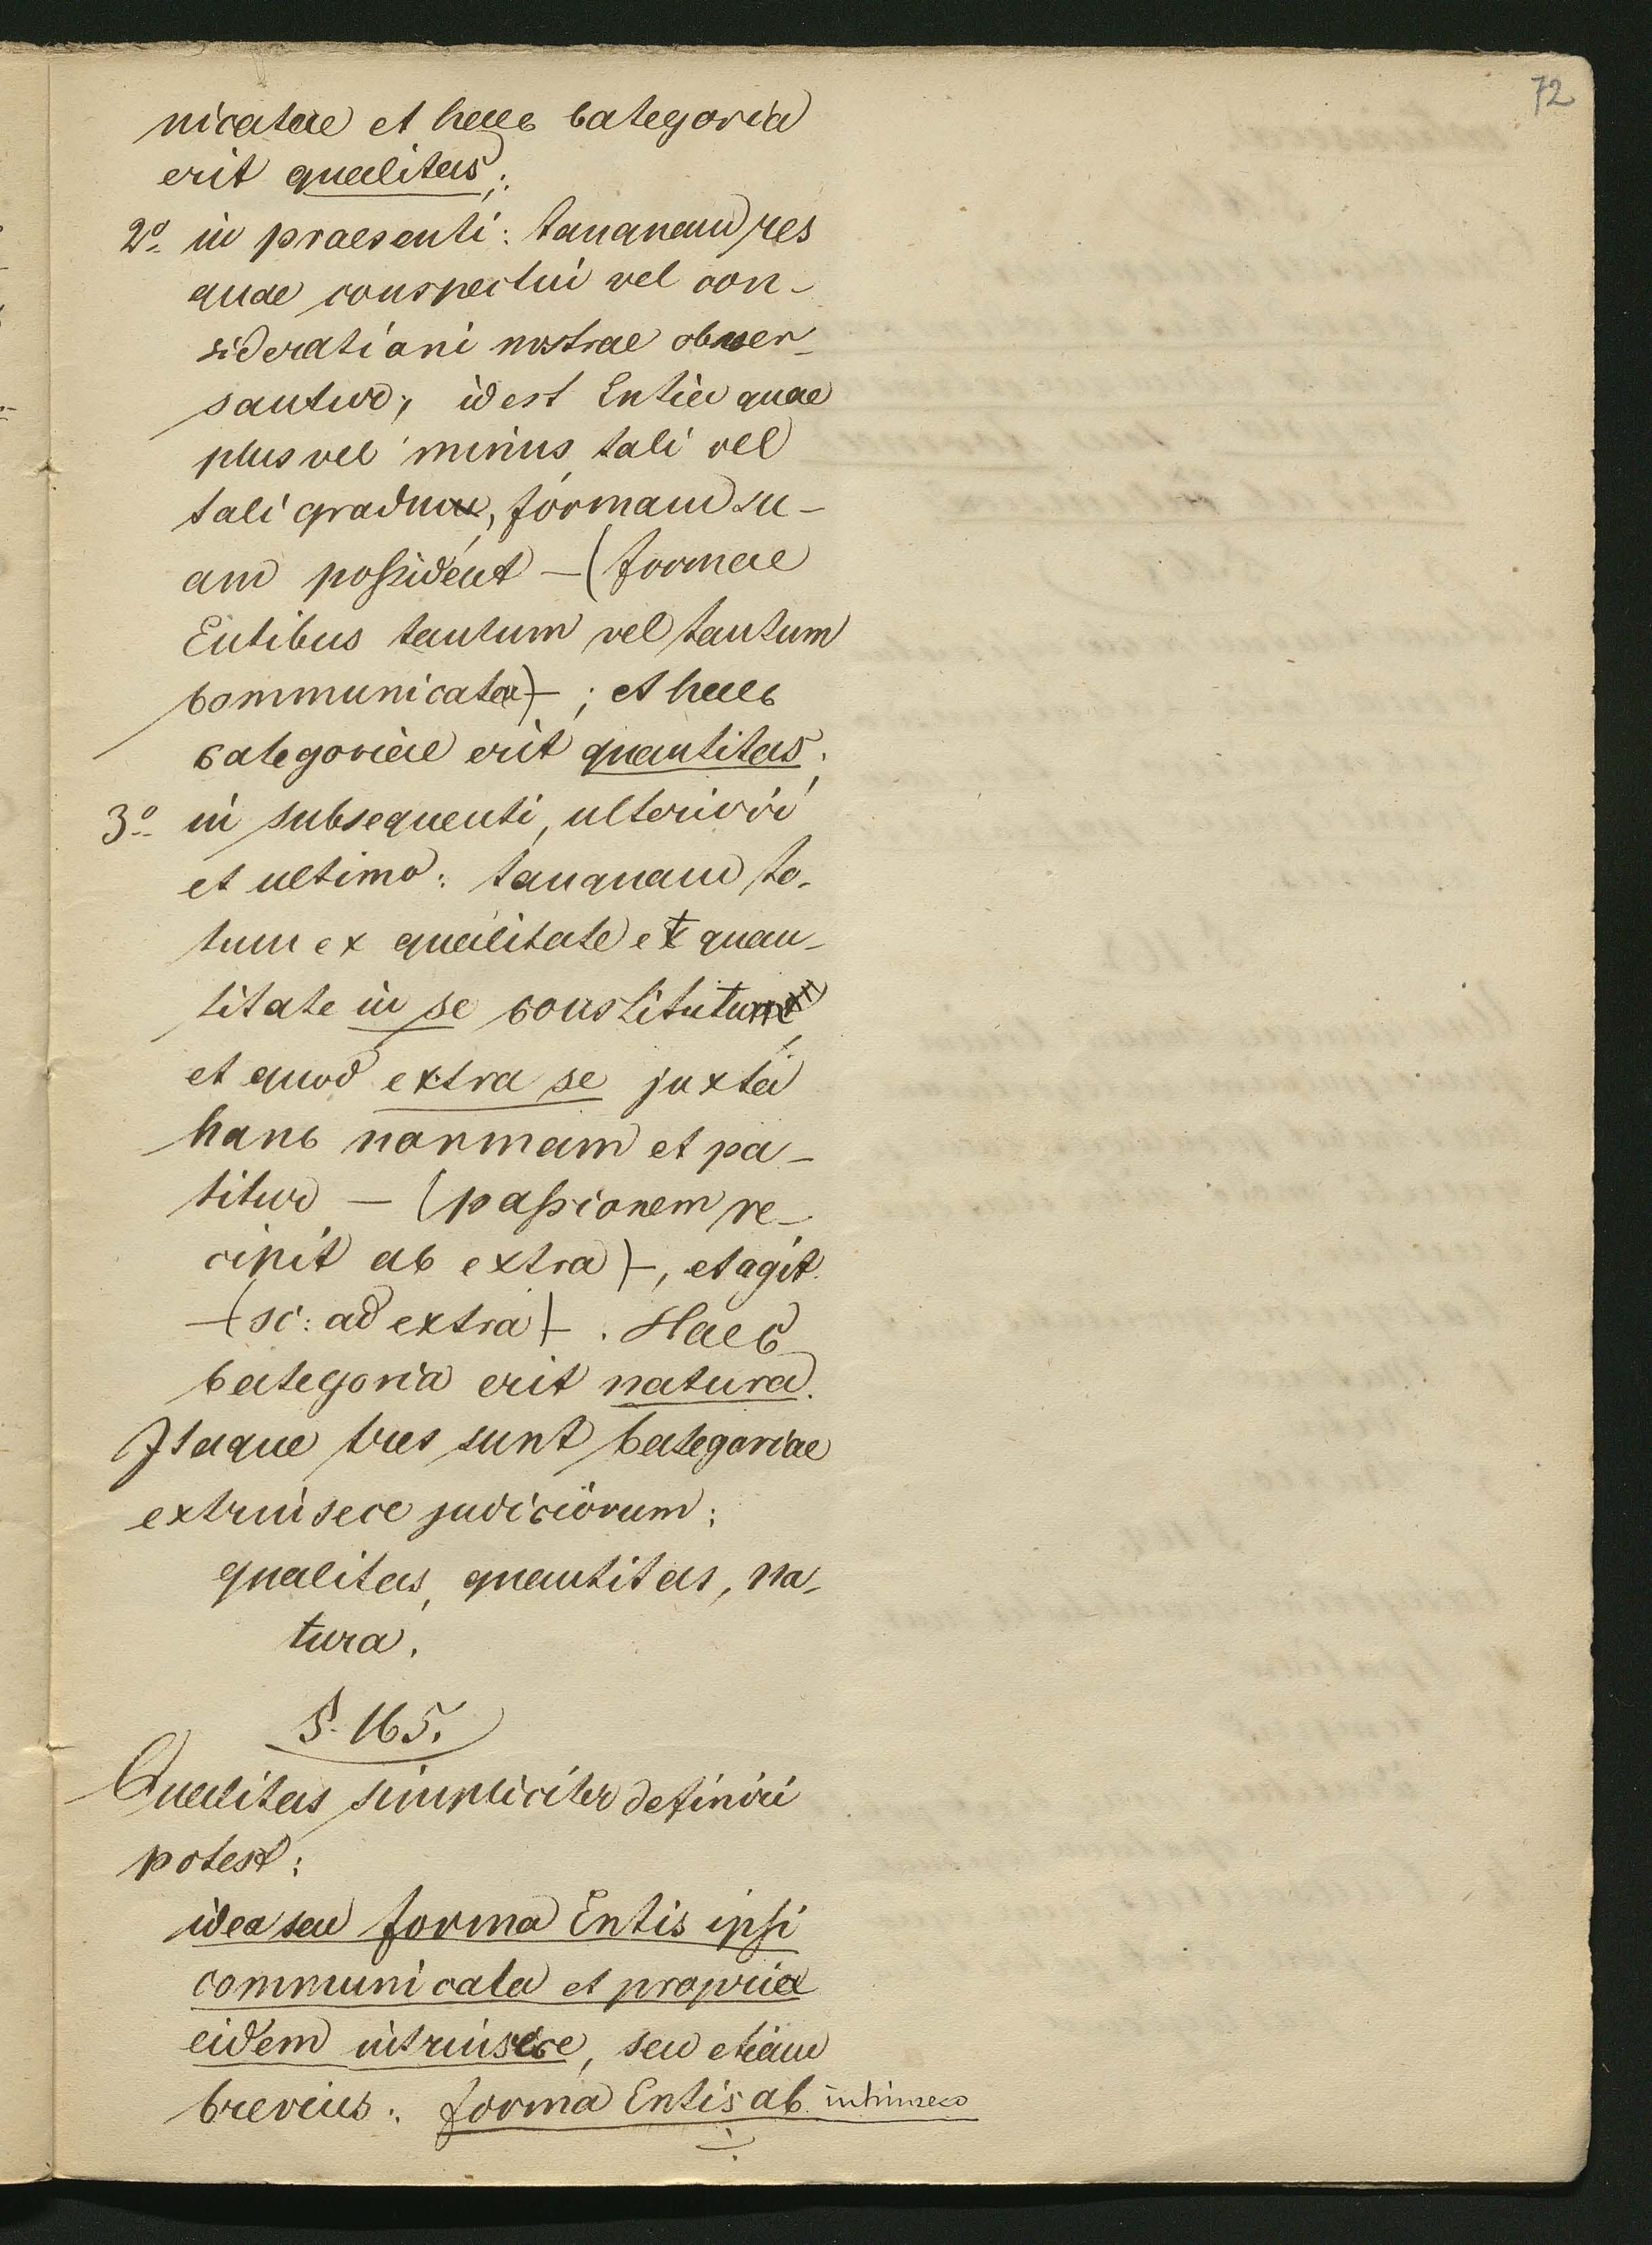 72
nicatae et haec categoria
erit qualitas;
2º in praesenti: tanquam res
quae conspectui vel con-
siderationi nostrae obver-
santur; id est Entia quae
plus vel minus, tali vel
tali gradu, formam su-
am possident - (formae
Entibus tantum vel tantum
communicatae) - ; et haec
categoriae erit quantitas;
3º in subsequenti, ulteriori
et ultimo: tanquam to-
tum ex qualitate et quan-
titate in se constitutum,
et quod extra se juxta
hanc normam et pa-
titur - (passionem re-
cipit ab extra) -, et agit
- (sc: ad extra) - . Haec
categoria erit natura.
Itaque tres sunt categoriae
extrinsece judiciorum:
qualitas, quantitas, na-
tura.
§. 165.
Qualitas simpliciter definiri
potest:
idea seu forma Entis ipsi
communicata et propria
eidem intrinsece, seu etiam
brevius: forma Entis ab intrinseco